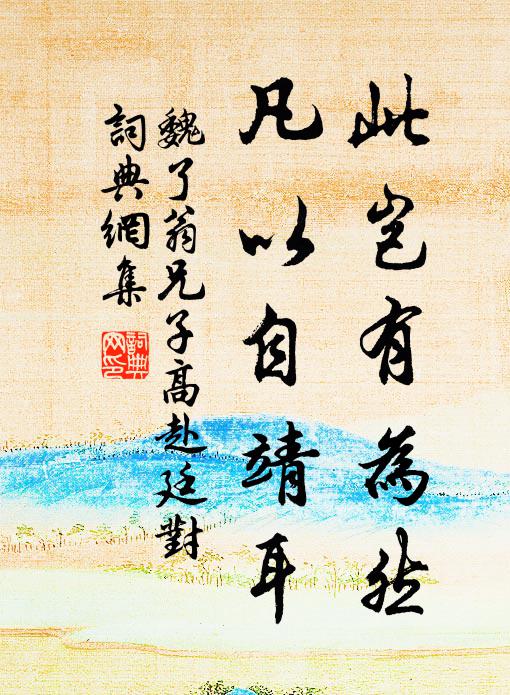 此岂有為然
凡以自靖耳
魏了翁兄子高赴廷對
詞典網集
詞典
网印